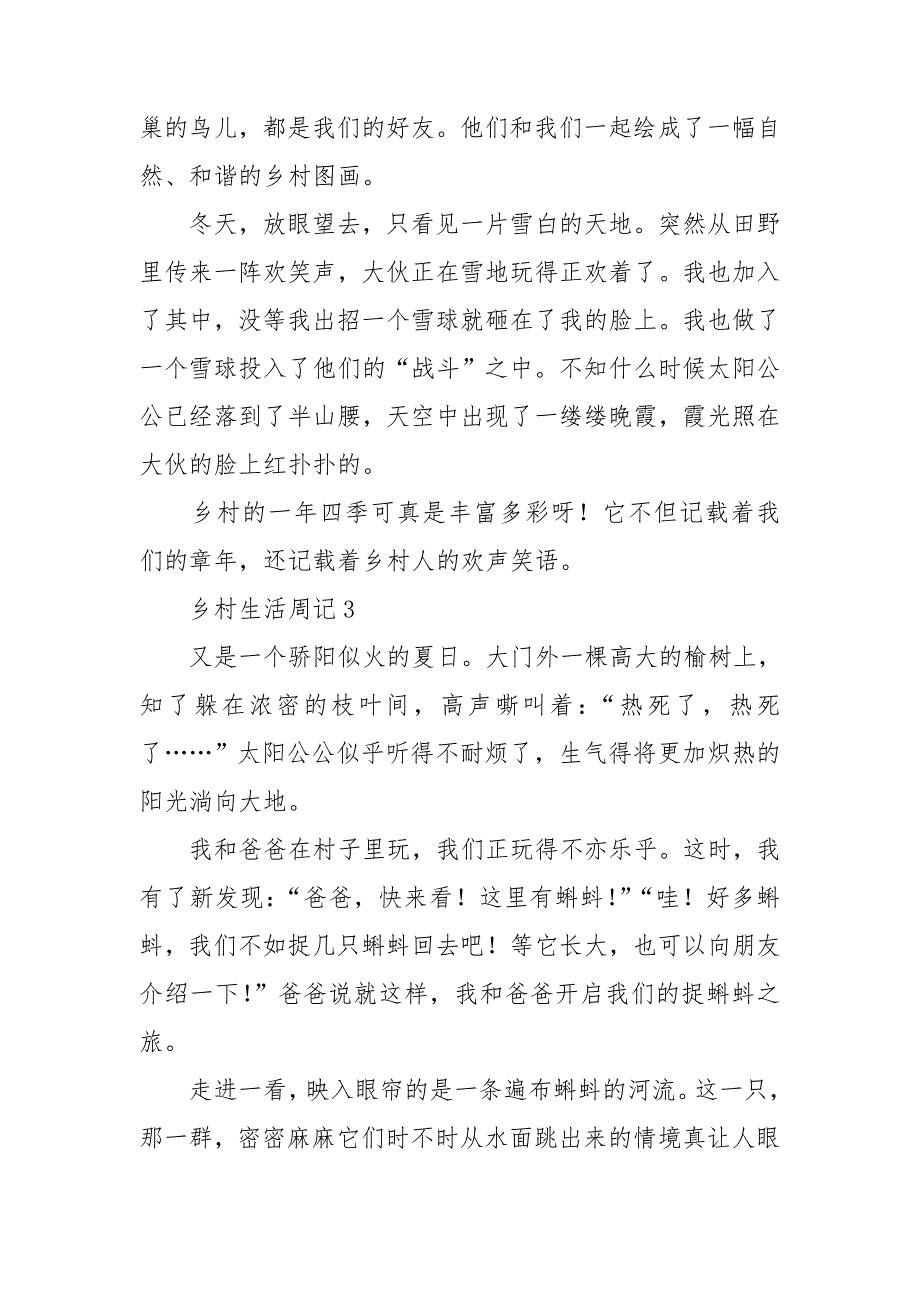 巢的鸟儿，都是我们的好友。他们和我们一起绘成了一幅自
然、和谐的乡村图画。
冬天，放眼望去，只看见一片雪白的天地。突然从田野
里传来一阵欢笑声，大伙正在雪地玩得正欢着了。我也加入
了其中，没等我出招一个雪球就砸在了我的脸上。我也做了
一个雪球投入了他们的“战斗”之中。不知什么时候太阳公
公已经落到了半山腰，天空中出现了一缕缕晚霞，霞光照在
大伙的脸上红扑扑的。
乡村的一年四季可真是丰富多彩呀！它不但记载着我
们的章年，还记载着乡村人的欢声笑语。
乡村生活周记3
又是一个骄阳似火的夏日。大门外一棵高大的榆树上，
知了躲在浓密的枝叶间，高声嘶叫着：“热死了，热死
了……”太阳公公似乎听得不耐烦了，生气得将更加炽热的
阳光淌向大地。
我和爸爸在村子里玩，我们正玩得不亦乐乎。这时，我
有了新发现：“爸爸，快来看！这里有蝌蚪！”“哇！好多蝌
蚪，我们不如捉几只蝌蚪回去吧！等它长大，也可以向朋友
介绍一下！”爸爸说就这样，我和爸爸开启我们的捉蝌蚪之
旅。
走进一看，映入眼帘的是一条遍布蝌蚪的河流。这一只，
那一群，密密麻麻它们时不时从水面跳出来的情境真让人眼